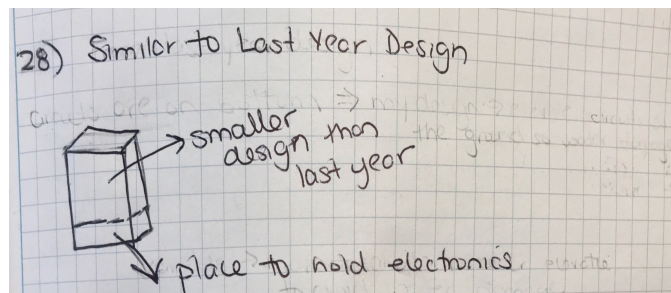 28) Similar to Last Year Design
smaller
design than
last year
place to hold electronics